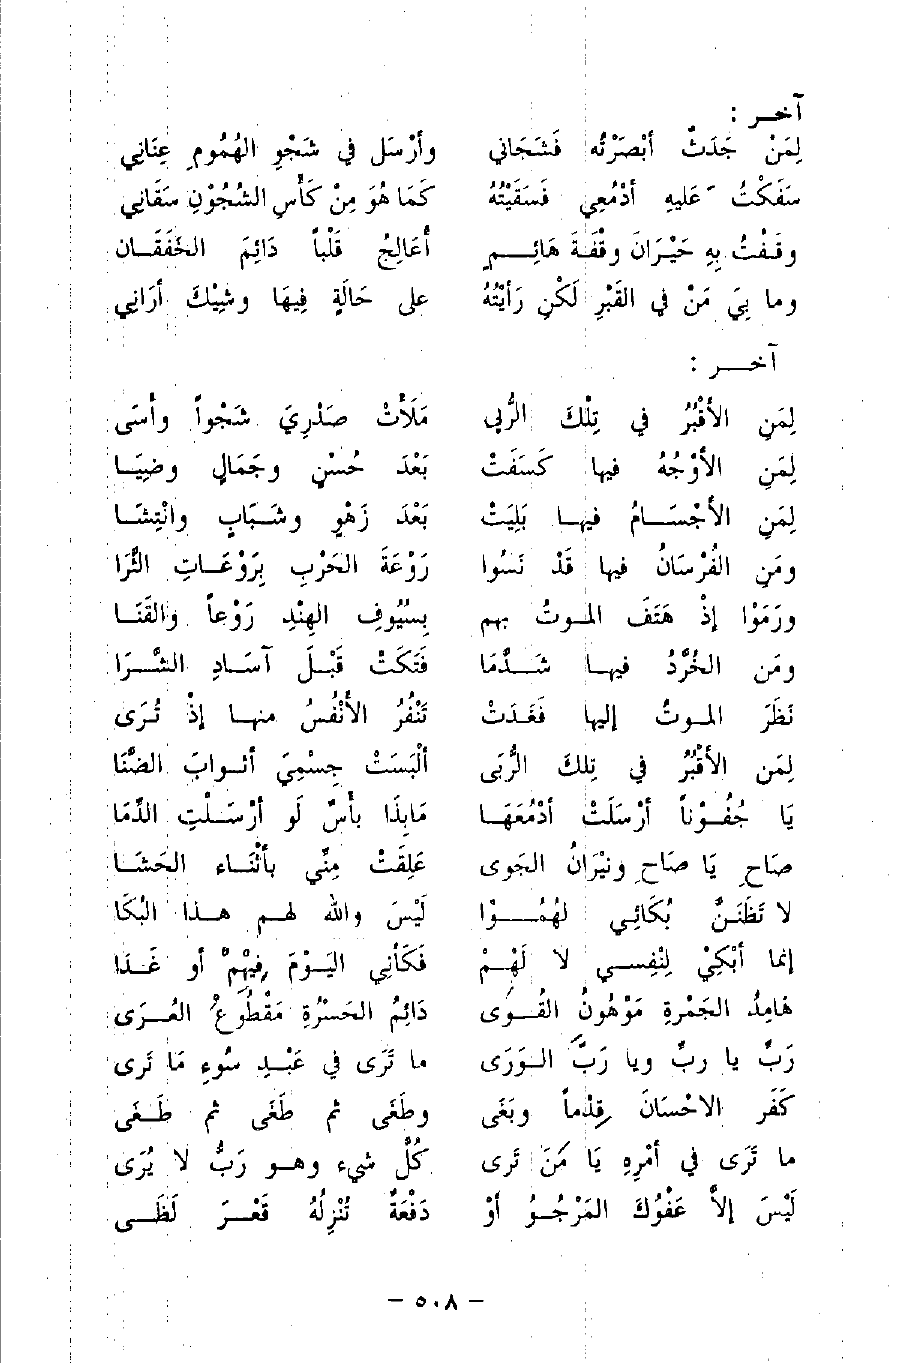 آخـر :
لِمَنْ جَدَثٌ أَبْصَرْتُه فَشَجَاني وأَرْسَل في شَجْوِ الهُمُومِ عِنَاني
سَفَكْتُ عَليهِ أَدْمُعِي فَسَقَيْتُهُ كَمَا هُوَ مِنْ كَأْسِ الشُجُوْنِ سَقَاني
وقَفْتُ بِهِ حَيْرَانَ وِقْفَةَ هَائِمٍ أُعَالِجُ قَلْباً دَائِمَ الخَفَقَان
وما بيَ مَنْ في القَبْرِ لَكنِ رَأَيْتُهُ على حَالَةٍ فِيهَا وشِيْكَ أَرَاني
آخـر :
لِمَنِ الأَقْبُرُ في تِلْكَ الرُّبى مَلَأَتْ صَدْرِيَ شَجْواً وأَسَى
لِمَنِ الأَوْجُهُ فيها كَسَفَتْ بَعْدَ حُسْنٍ وجَمَالٍ وضِيَا
لِمَنِ الأَجْسَامُ فيها بَلِيَتْ بَعْدَ زَهْوٍ وشَبَابٍ وانْتِشَا
ومَنِ الفُرْسَانُ فيها قَدْ نَسُوا رَوْعَةَ الحَرْبِ بِرَوْعَاتِ الثَّرَا
ورَمَوْا إِذْ هَتَفَ الموتُ بهم بِسُيُوفِ الهِنْدِ رَوْعاً والقَنَا
ومَن الخُرَّدُ فيها شَدَّمَا فَتَكَتْ قَبْلَ آسَادِ الشَّرَا
نَظَرَ الموتُ إليها فَغَدَتْ تَنْفُرُ الأَنْفُسُ منها إِذْ تُرَى
لِمَن الأَقْبُرُ في تِلكَ الرُّبَى أَلْبَسَتْ جِسْمِيَ أَثوابَ الضَّنَا
يَا جُفُوْناً أَرْسَلَتْ أَدْمُعَهَا مَابِذَا بأسٌ لَو أَرْسَلْتِ الدِّمَا
صَاحِ يَا صَاحِ ونيْرَانُ الجَوى عَلِقَتْ مِنِّي بأَثْنَاءِ الحَشَا
لا تَظَنَّنْ بُكَائِي لهُمُوْا لَيْسَ واللهِ لهم هذا البُكَا
إنما أَبْكِيْ لِنَفْسي لا لَهُمْ فَكَأَنِي اليَوْمَ فِيْهِمْ أو غَدَا
هَامِدُ الجَمْرةِ مَوْهُونُ القُوى دَائِمُ الحَسْرَةِ مَقْطُوعُ العُرَى
رَبِّ يا ربِّ ويا رَبَّ الوَرَى ما تَرَى في عَبْدِ سُوءٍ مَا تَرى
كَفَر الاحْسَانَ قِدْماً وبَغَى وطَغَى ثم طَغَى ثم طَغَى
ما تَرَى في أَمْرِهِ يَا مَنْ تَرى كُلَّ شيء وهو رَبٌّ لا يُرَى
لَيْسَ إِلاَّ عَفْوُكَ المَرْجُوُ أَوْ دَفْعَةٌ تُنْزِلُهُ قَعْرَ لَظَى
– ٥٠٨ –